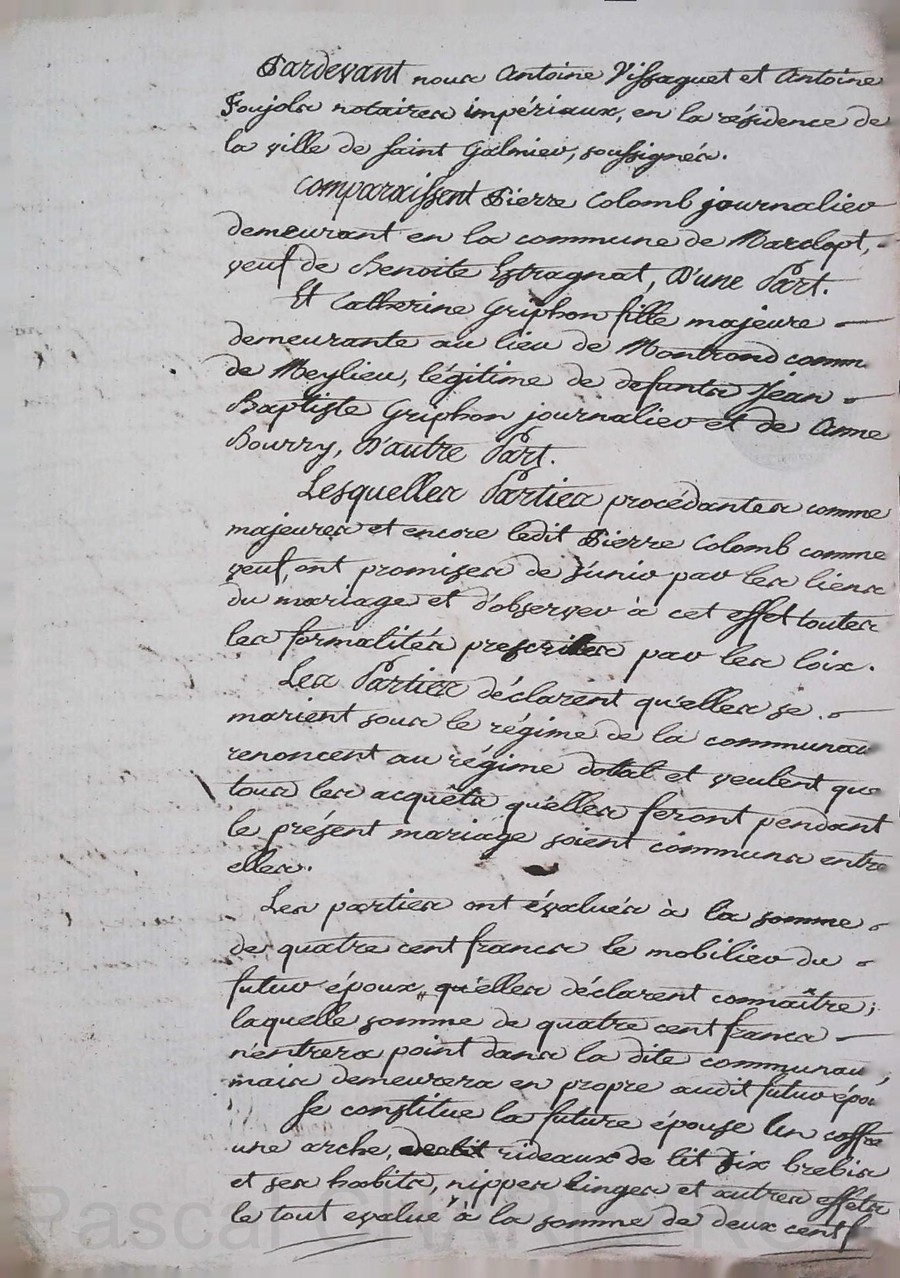 Pardevant nous Antoine Vissaguet et Antoine
Foujols notaires impériaux, en la résidence de
la ville de saint Galmier, soussignés.
comparaissent Pierre Colomb journalier
demeurant en la commune de Marclopt,
veuf de Benoite Estragnat, D'une Part.
Et Catherine Griphon fille majeure
demeurante au lieu de Montrond comm
de Meylieu, légitime de defunts Jean
Baptiste Griphon journalier et de Anne
Bourry, D'autre Part.
Lesquelles Parties procédantes comme
majeures et encore ledit Pierre Colomb comme
veuf, ont promises de s'unir par les liens
du mariage et d'observer à cet effet toutes
les formalités prescrites par les loix.
Les Parties déclarent qu'elles se
marient sous le régime de la communau
renoncent au régime dottal et veulent que
tous les acquêts qu'elles feront pendant
le présent mariage soient communs entre
elles.
Les parties ont évalués à la somme
de quatre cent francs le mobilier du
futur époux, qu'elles déclarent connaître;
laquelle somme de quatre cent francs
n'entrera point dans la dite communau
mais demeurera en propre audit futur épou
Se constitue la future épouse Un coffre
une arche, rideaux de lit six brebis
et ses habits, nippes linges et autres effets
le tout evalué à la somme de deux cent f
Pascal CHAREYRON